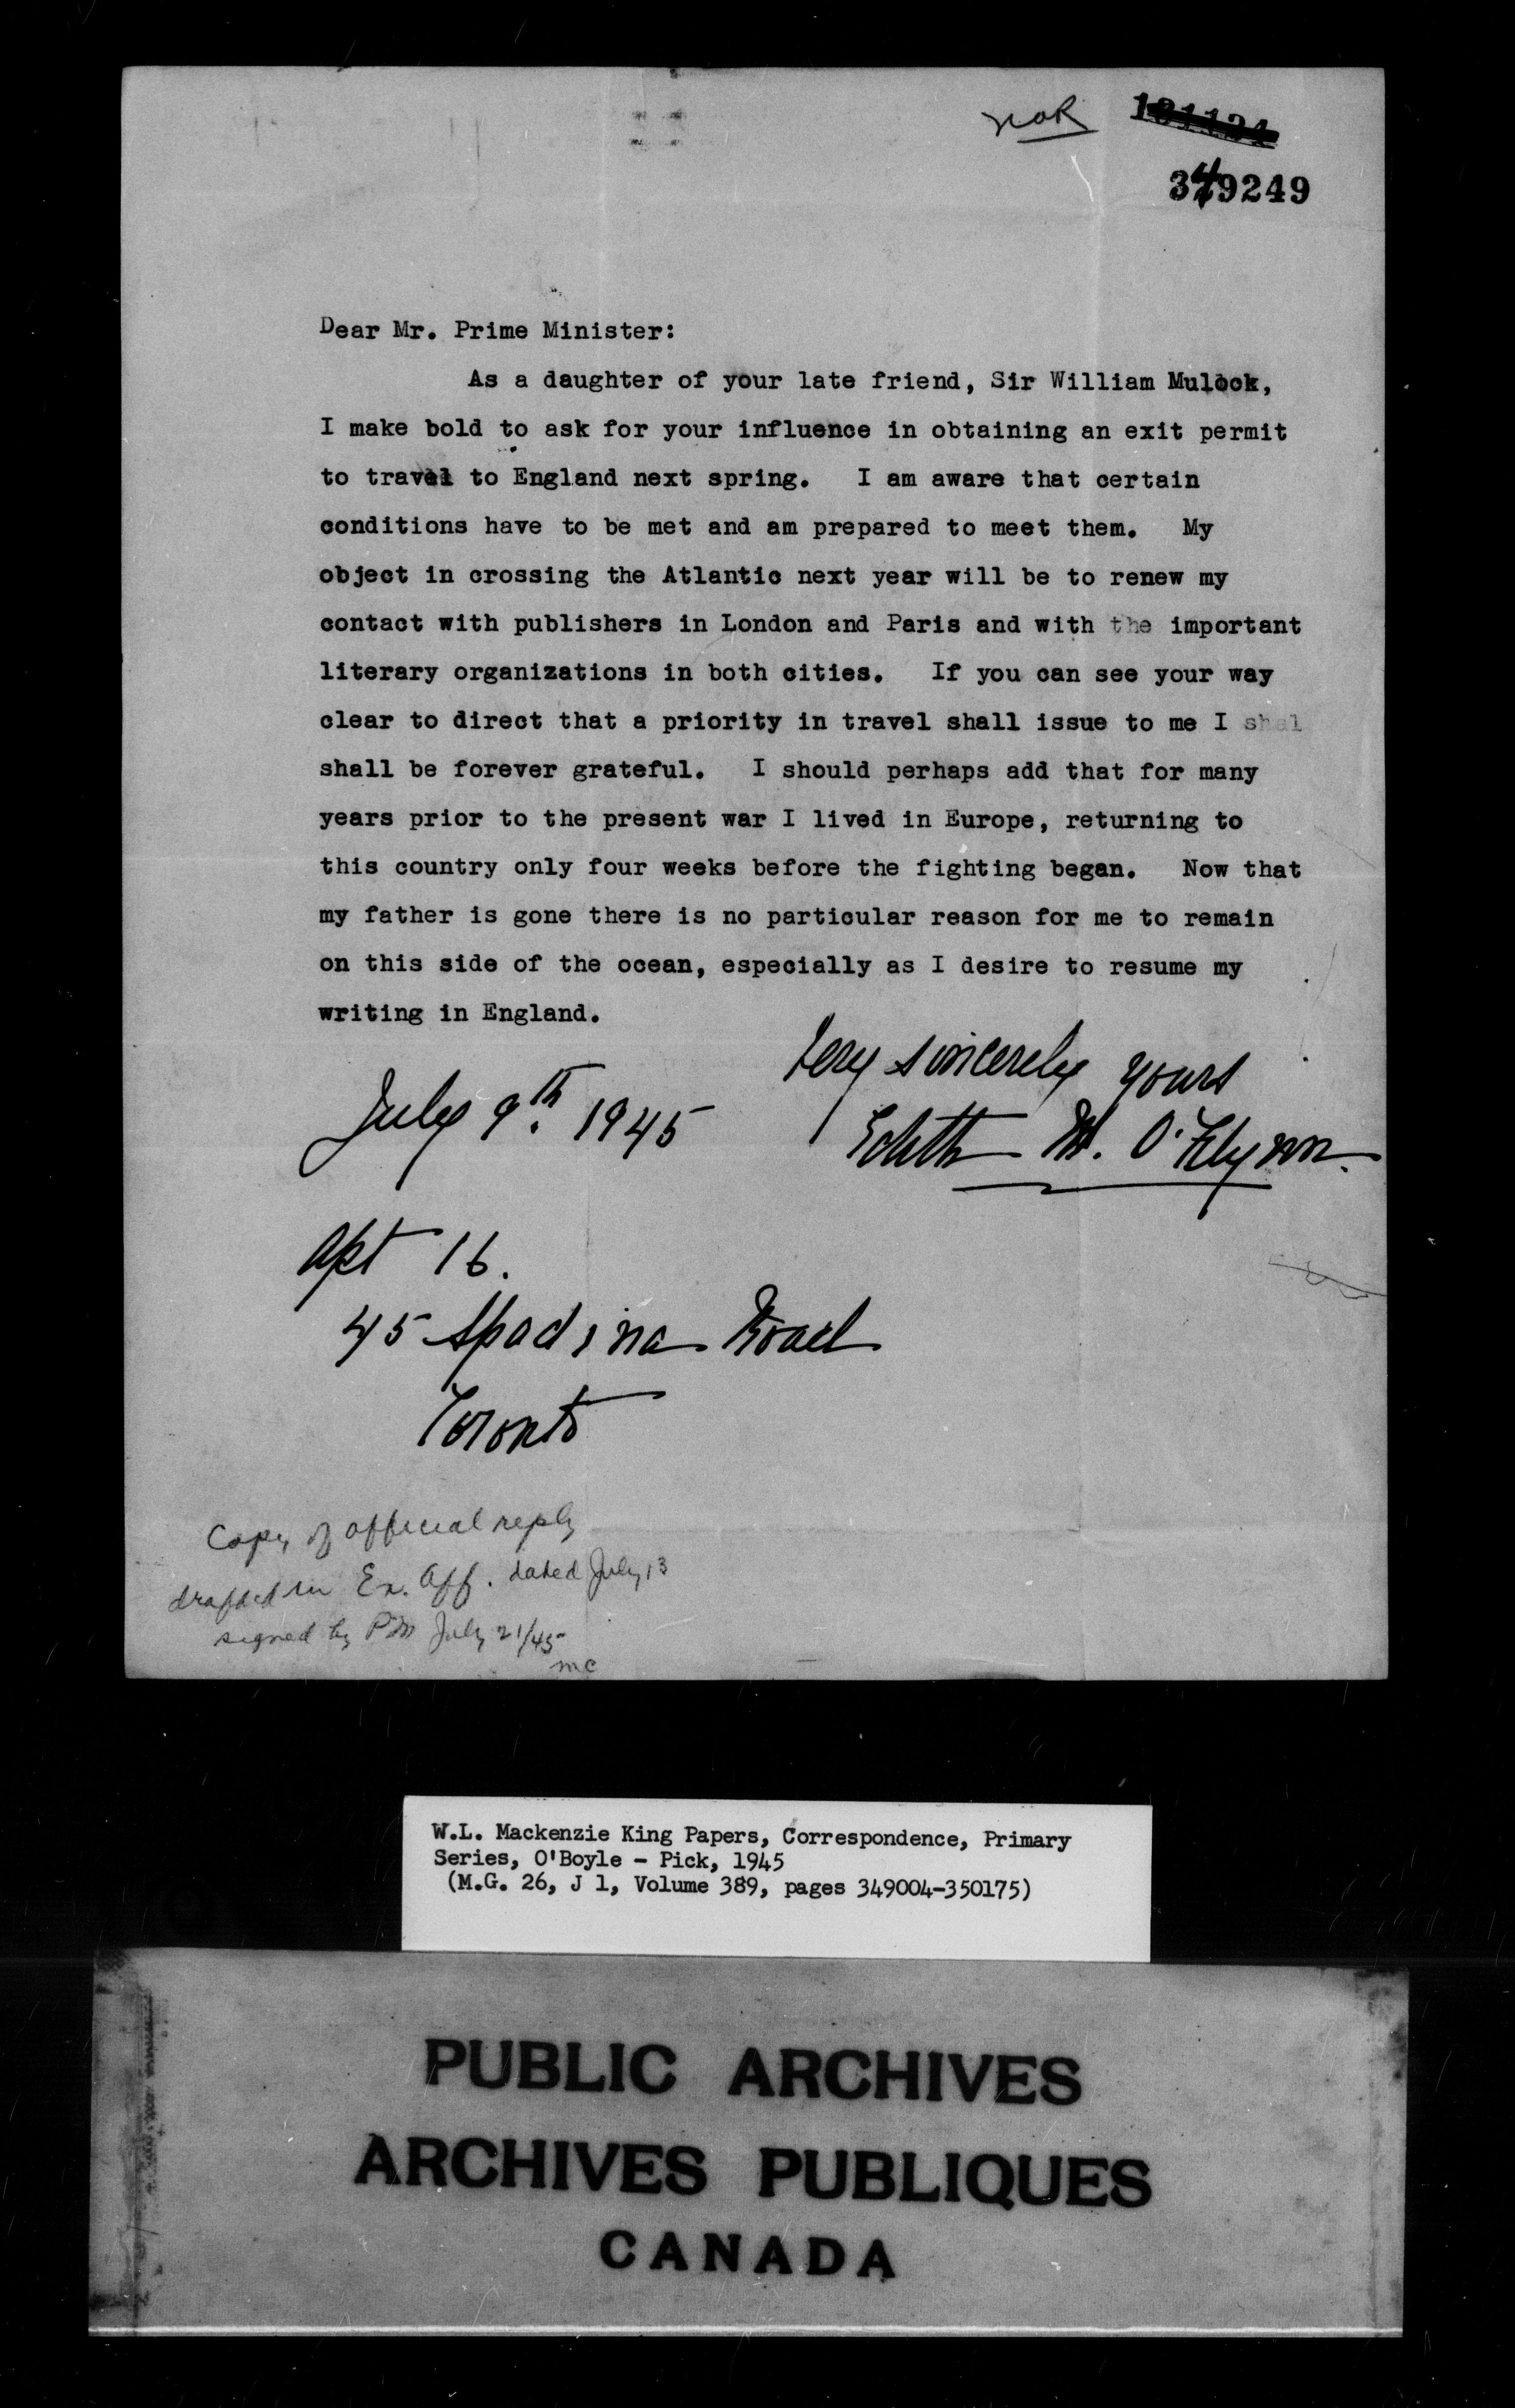 noR
181134
349249
Dear Mr. Prime Minister:
As a daughter of your late friend, Sir William Mulock,
I make bold to ask for your influence in obtaining an exit permit
to travel to England next spring. I am aware that certain
conditions have to be met and am prepared to meet them. My
object in crossing the Atlantic next year will be to renew my
contact with publishers in London and Paris and with the important
literary organizations in both cities. If you can see your way
clear to direct that a priority in travel shall issue to me I shal
shall be forever grateful. I should perhaps add that for many
years prior to the present war I lived in Europe, returning to
this country only four weeks before the fighting began. Now that
my father is gone there is no particular reason for me to remain
on this side of the ocean, especially as I desire to resume my
writing in England.
Very sincerely yours
July 9th. 1945
Edith M. O'Flynn.
Apt 16.
45 Spadina Road
Toronto
Copy of official reply
drafted in Ex. Aff. dated July 13
signed by PM July 21/45
mc
W.L. Mackenzie King Papers, Correspondence, Primary
Series, O'Boyle - Pick, 1945
(M.G. 26, J 1, Volume 389, pages 349004-350175)
PUBLIC ARCHIVES
ARCHIVES PUBLIQUES
CANADA